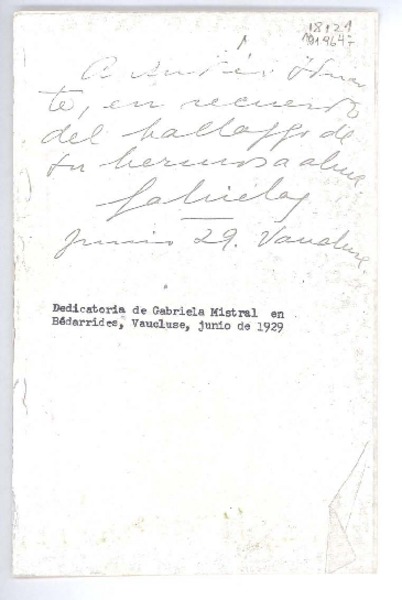 18121
A Andrés Iduar
te, en recuerdo
del hallazgo de
su hermosa alma
Gabriela
junio 29. Vaucluse.
Dedicatoria de Gabriela Mistral en
Bédarrides, Vaucluse, junio de 1929